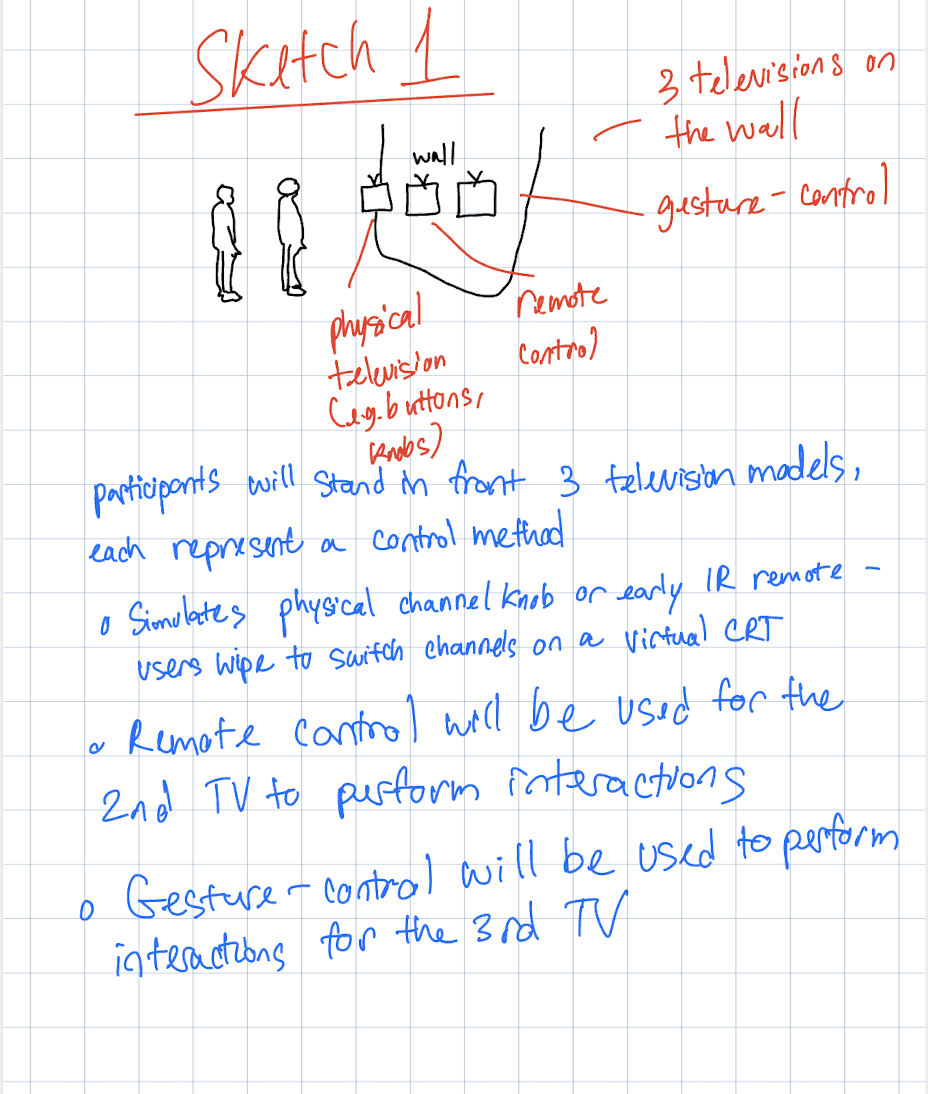 Sketch 1
3 televisions on
the wall
wall
gesture - control
physical
television
(e.g. buttons,
knobs)
remote
control
participants will stand in front 3 television models,
each represent a control method
o Simulates physical channel knob or early IR remote -
users wipe to switch channels on a virtual CRT
o Remote control will be used for the
2nd TV to perform interactions
o Gesture - control will be used to perform
interactions for the 3rd TV